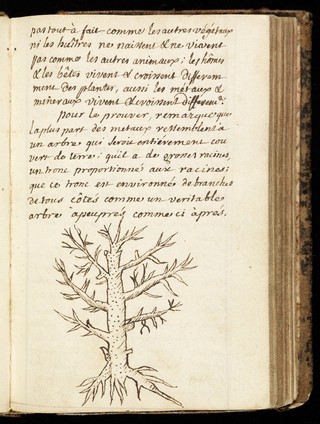 pas tout à fait comme les autres végétaux
ni les huîtres ne naissent & ne vivent
pas comme les autres animaux; les hômes
& les bêtes vivent & croissent differem
ment des plantes, aussi les métaux &
mineraux vivent & croissent differem.t:
pour le prouver, remarque que
la plus part des metaux ressemblent à
un arbre qui seroit entiérement cou
vert de terre; qu'il a de grosses racines,
un tronc proportionné aux racines;
que ce tronc est environné de branches
de tous côtés comme un veritable
arbre àpeuprés comme ci aprés.